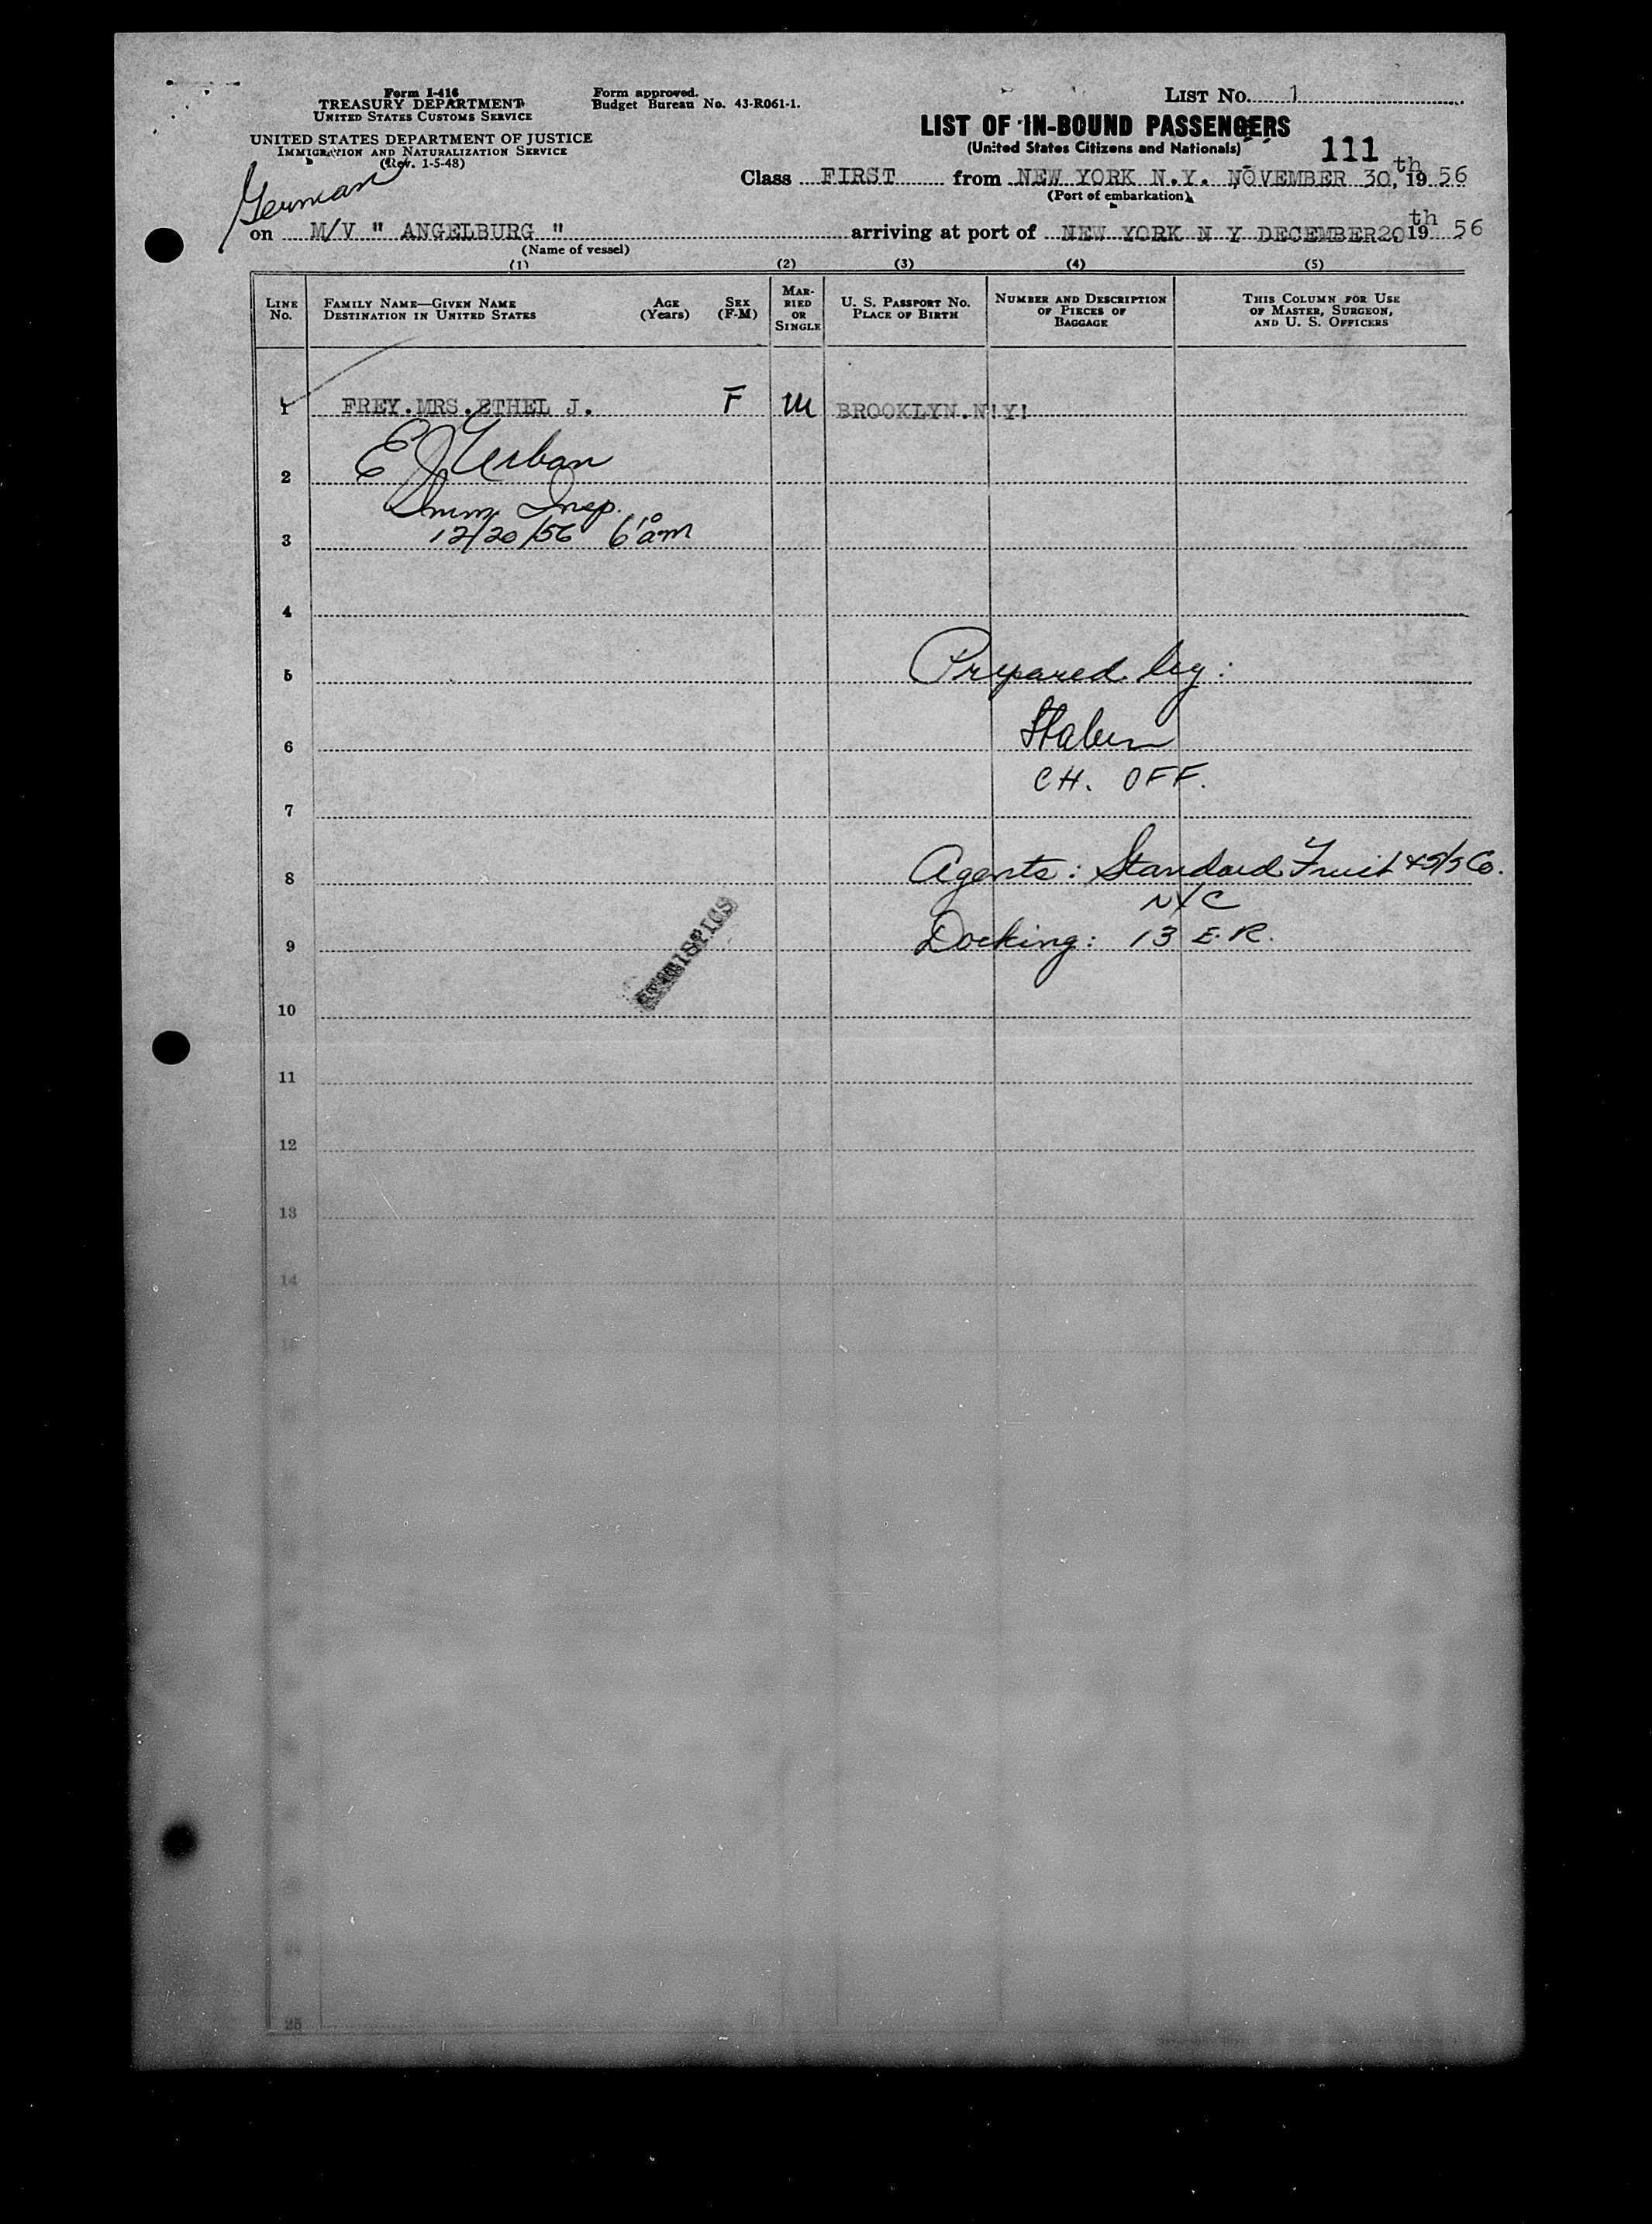 Form I-416
TREASURY DEPARTMENT
UNITED STATES CUSTOMS SERVICE
UNITED STATES DEPARTMENT OF JUSTICE
IMMIGRATION AND NATURALIZATION SERVICE
(Rev. 1-5-48)
Form approved.
Budget Bureau No. 43-R061-1.
LIST No. 1
LIST OF IN-BOUND PASSENGERS
(United States Citizens and Nationals)
111
Class FIRST from NEW YORK N.Y. NOVEMBER 30, th 19 56
(Port of embarkation)
German
on M/V " ANGELBURG " arriving at port of NEW YORK N Y DECEMBER 20 th 19 56
(Name of vessel)
(1) (2) (3) (4) (5)
LINE No.
FAMILY NAME—GIVEN NAME
DESTINATION IN UNITED STATES
AGE (Years)
SEX (F-M)
MARRIED OR SINGLE
U. S. PASSPORT NO.
PLACE OF BIRTH
NUMBER AND DESCRIPTION
OF PIECES OF
BAGGAGE
THIS COLUMN FOR USE
OF MASTER, SURGEON,
AND U. S. OFFICERS
1 FREY.MRS.ETHEL J. F M BROOKLYN.N!Y!
E J Urban
2
Imm. Insp.
3 12/20/56 6 10 am
4
5 Prepared by:
6
CH. OFF.
7
8 Agents: Standard Fruit & S/S Co.
NYC
9 Docking: 13 E.R.
STATISTICS
10
11
12
13
14
15
25